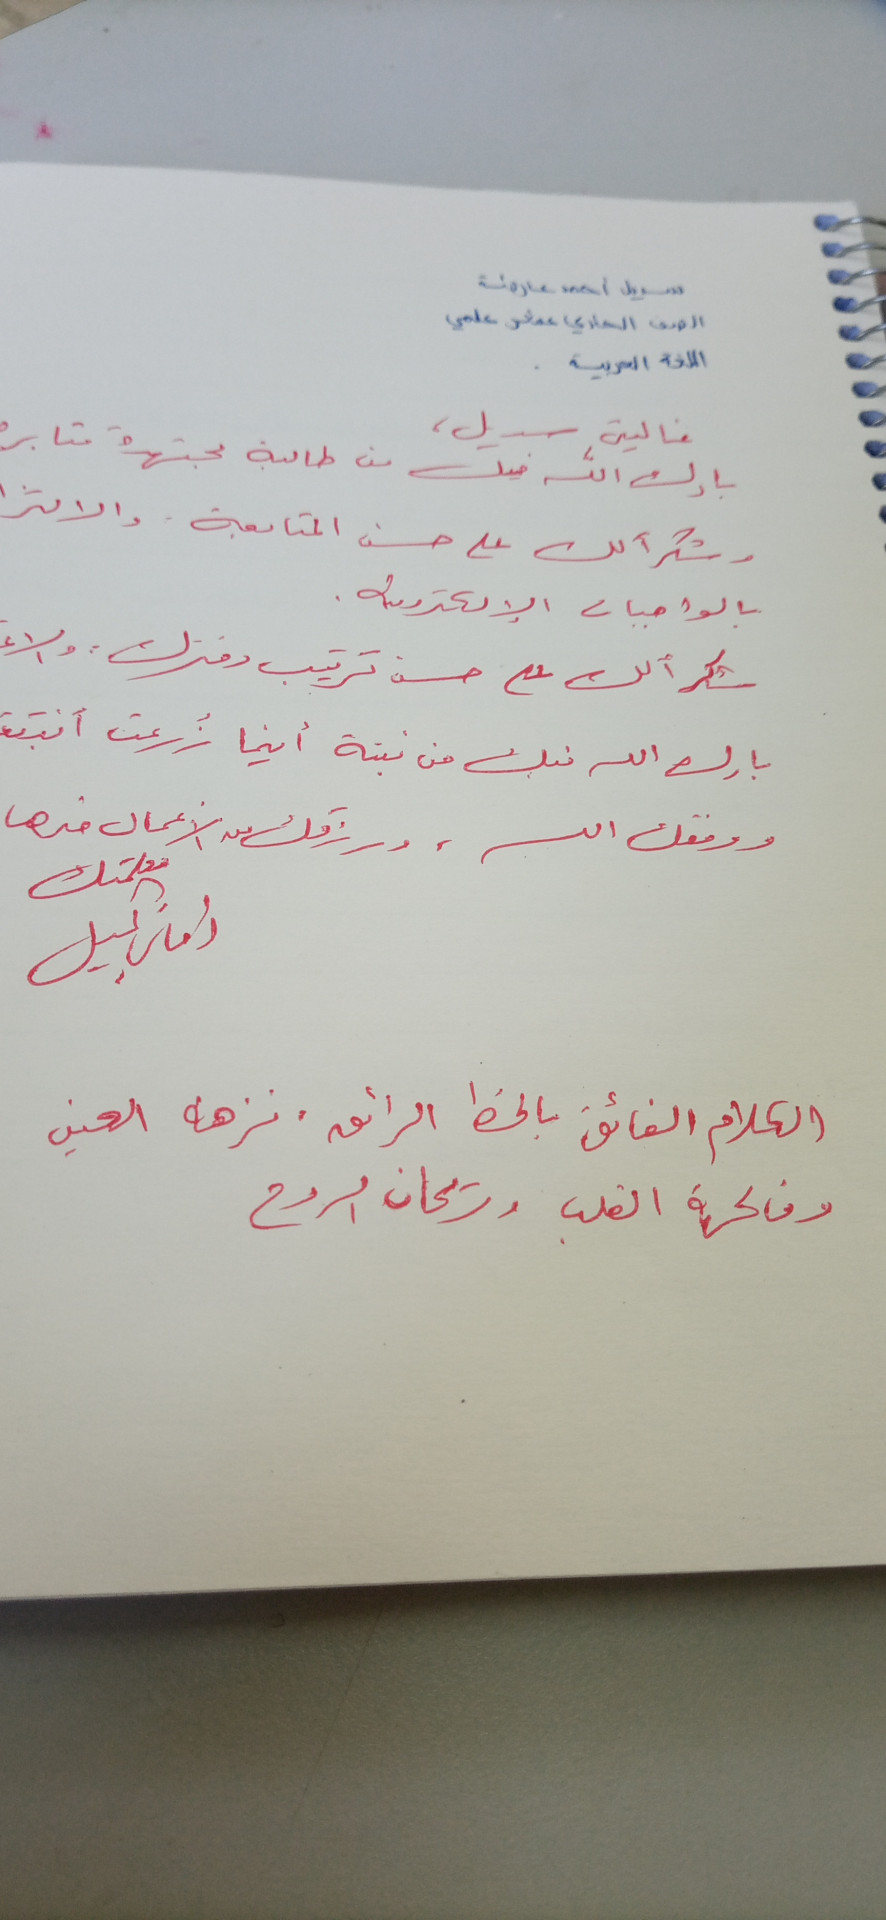 سديل أحمد عارضة
الصف الحادي عشر علمي
اللغة العربية .
غاليتي سديل،
بارك الله فيك من طالبة مجتهدة
وشكراً لك على حسن المتابعة .
بالواجبات الإلكترونية .
شكراً لك على حسن ترتيب دفترك ،
بارك الله فيك من نبتة أينما زُرعت
ووفقك الله ، ورزقك من الأعمال خيرها
معلمتك
أماني
الكلام الفائق بالخط الرائق ، نزهة العين
وفاكهة القلب وريحان الروح